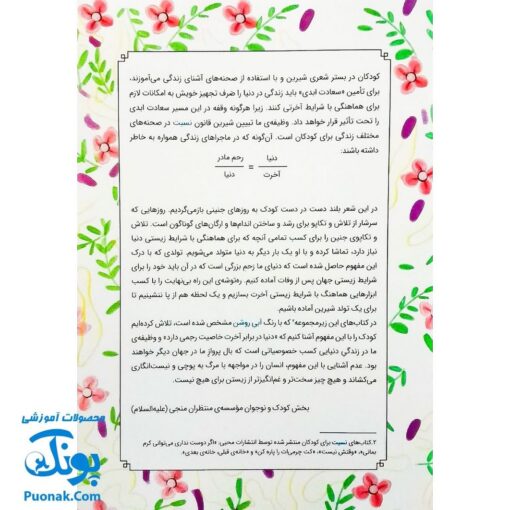 کودکان در بستر شعری شیرین و با استفاده از صحنه‌های آشنای زندگی می‌آموزند،
برای تأمین «سعادت ابدی» باید زندگی در دنیا را صرف تجهیز خویش به امکانات لازم
برای هماهنگی با شرایط آخرتی کنند. زیرا هرگونه وقفه در این مسیر سعادت ابدی
را تحت تأثیر قرار خواهد داد. وظیفه‌ی ما تبیین شیرین قانون نسبت در صحنه‌های
مختلف زندگی برای کودکان است. آن‌گونه که در ماجراهای زندگی همواره به خاطر
داشته باشند:
دنیا / آخرت = رحم مادر / دنیا
در این شعر بلند دست در دست کودک به روزهای جنینی بازمی‌گردیم. روزهایی که
سرشار از تلاش و تکاپو برای رشد و ساختن اندام‌ها و ارگان‌های گوناگون است. تلاش
و تکاپوی جنین را برای کسب تمامی آنچه که برای هماهنگی با شرایط زیستی دنیا
نیاز دارد، تماشا کرده و با او یک بار دیگر به دنیا متولد می‌شویم. تولدی که با درک
این مفهوم حاصل شده است که دنیای ما رحم بزرگی است که در آن باید خود را برای
شرایط زیستی جهان پس از وفات آماده کنیم. ره‌توشه‌ی این راه بی‌نهایت را با کسب
ابزارهایی هماهنگ با شرایط زیستی آخرت بسازیم و یک لحظه هم از پا ننشینیم تا
برای یک تولد شیرین آماده باشیم.
در کتاب‌های این زیرمجموعه۲ که با رنگ آبی روشن مشخص شده است، تلاش کرده‌ایم
کودک را با این مفهوم آشنا کنیم که «دنیا در برابر آخرت خاصیت رحمی دارد» و وظیفه‌ی
ما در زندگی دنیایی کسب خصوصیاتی است که بال پرواز ما در جهان دیگر خواهند
بود. عدم آشنایی با این مفهوم، انسان را در مواجهه با مرگ به پوچی و نیست‌انگاری
می‌کشاند و هیچ چیز سخت‌تر و غم‌انگیزتر از زیستن برای هیچ نیست.
بخش کودک و نوجوان مؤسسه‌ی منتظران منجی (علیه‌السلام)
۲.کتاب‌های نسبت برای کودکان منتشر شده توسط انتشارات محیی: «اگر دوست نداری می‌توانی کرم
بمانی»، «وقتش نیست»، «کت چرمی‌ات را پاره کن» و «خانه‌ی قبلی، خانه‌ی بعدی».
محصولات آموزشی
پونک
Puonak.Com